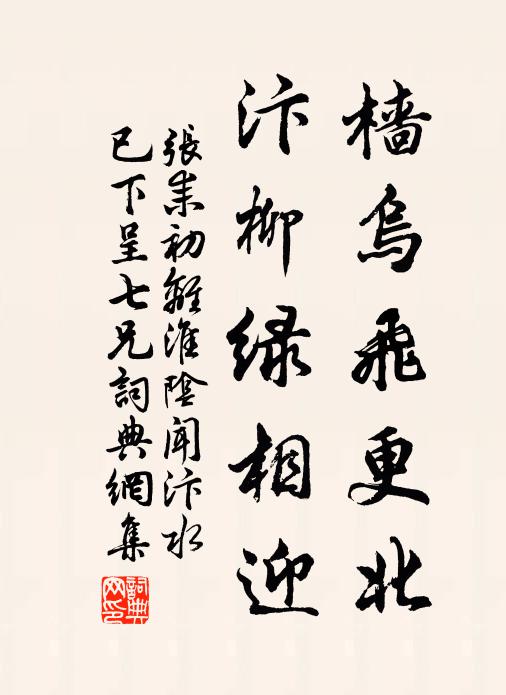 檣烏飛更北
汴柳綠相迎
張耒初離淮陰聞汴水
已下呈七兄詞典網集
詞典網印